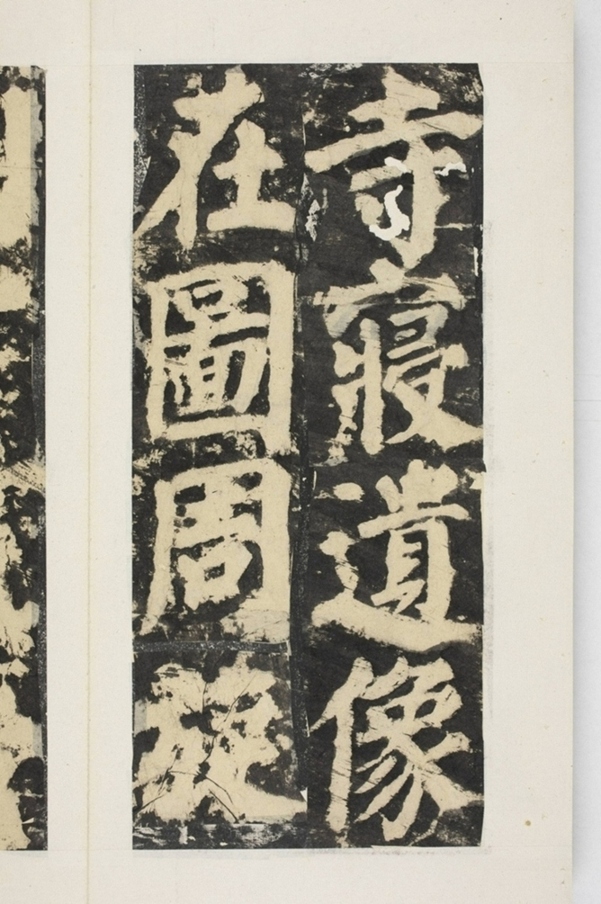 寺寝遺像
在圖周旋